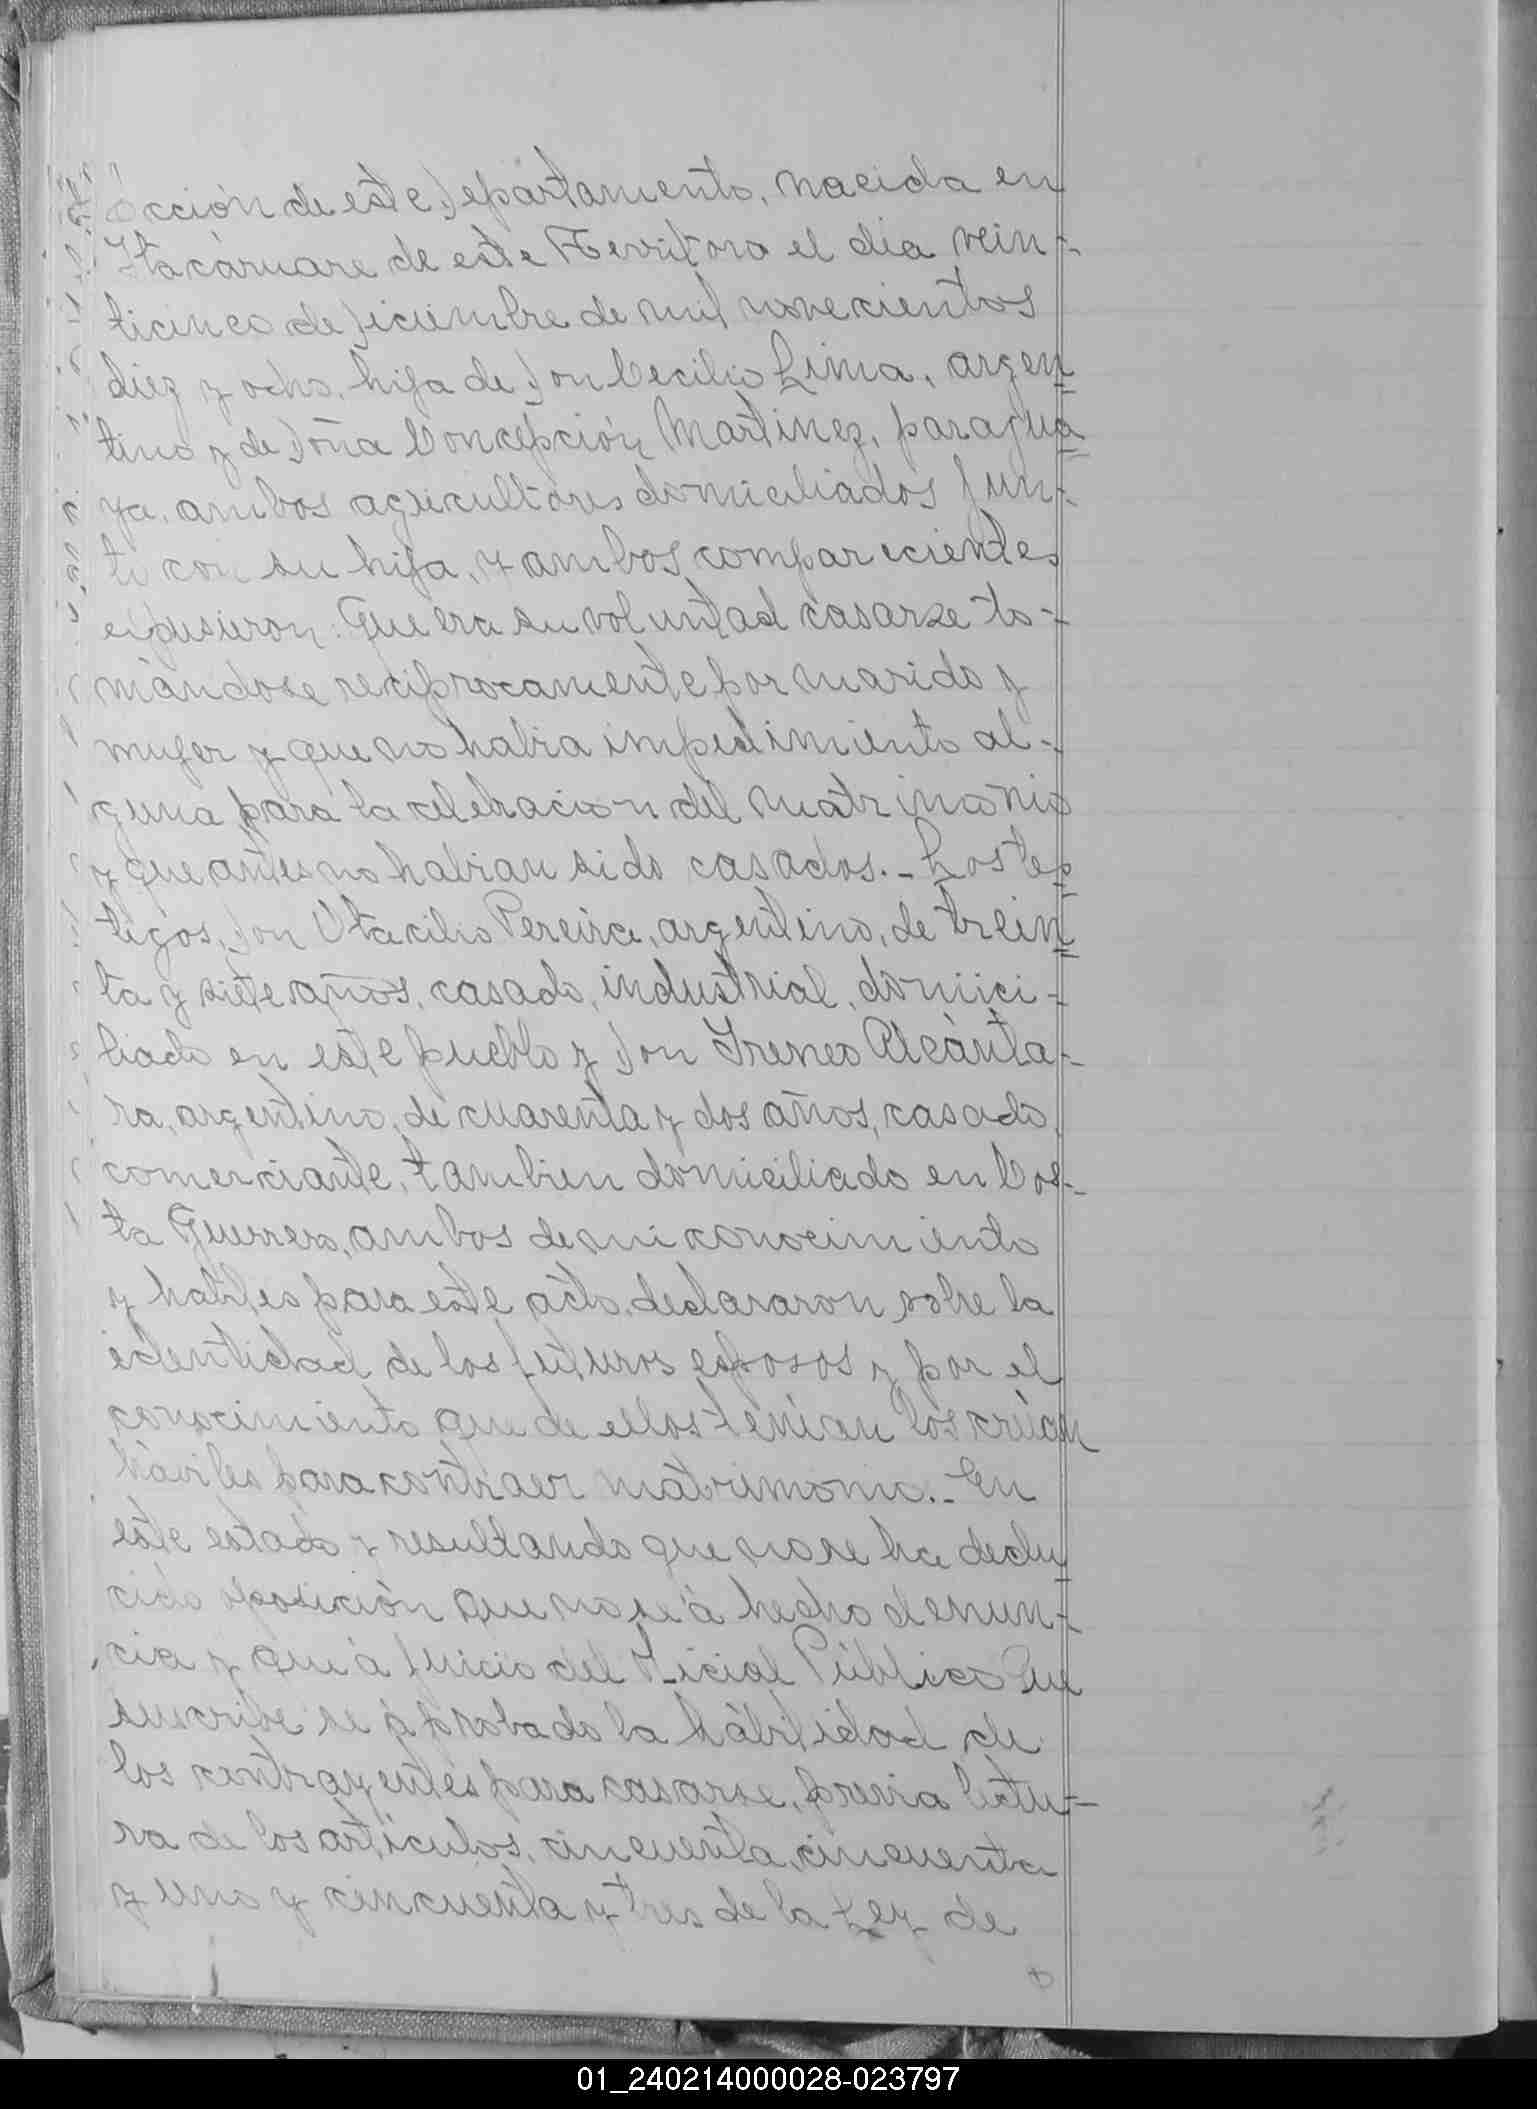 cción de este Departamento, nacida en
Itacaruare de este Territoro el dia vein-
ticinco de Diciembre de mil novecientos
diez y ocho, hija de Don Cecilio Lima, argen
tino y de Doña Concepción Martinez, paragua
ya, ambos agricultores domiciliados jun-
to con su hija, y ambos comparecientes
expusieron: Que era su voluntad casarse to-
mándose reciprocamente por marido y
mujer y que no habia impedimiento al-
guna para la celebracion del matrimonio
y que antes no habian sido casados.- Los tes
tigos, Don Otacilio Pereira, argentino, de trein
ta y siete años, casado, industrial, domici-
liado en este pueblo y Don Ireneo Alcánta-
ra, argentino, de cuarenta y dos años, casado,
comerciante, tambien domiciliado en Cos-
ta Guerrero, ambos de mi conocimiento
y habiles para este acto, declararon sobre la
identidad de los futuros esposos y por el
conocimiento que de ellos tenian los créian
háviles para contraer matrimonio.- En
este estado y resultando que no se ha dedu
cido oposición que no se á hecho denun-
cia y que á juicio del Oficial Público que
suscribe se á probado la hábilidad de
los contrayentes para casarse, previa lectu-
ra de los articulos, cincuenta, cincuenta
y uno y cincuenta y tres de la Ley de
01_240214000028-023797